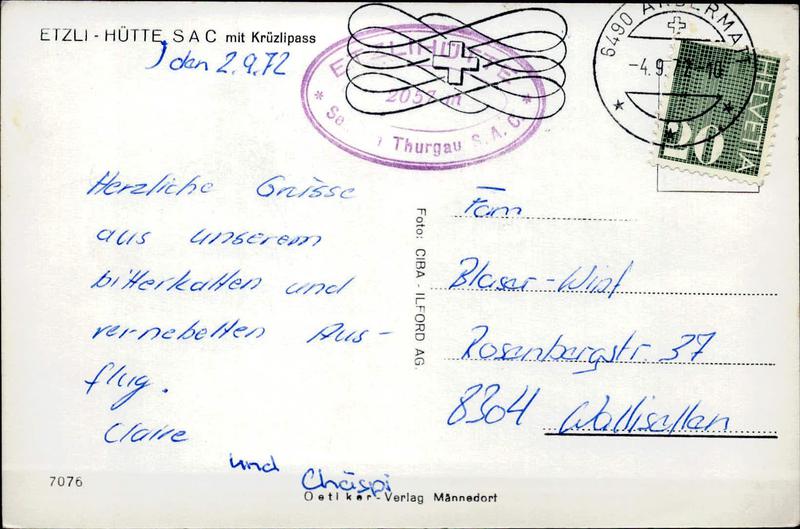 ETZLI - HÜTTE SAC mit Krüzlipass
, den 2.9.72
ETZLIHÜTTE
2057 m
Thurgau S.A.C.
6490 ANDERMATT
-4.9.
HELVETIA
20
Herzliche Grüsse
aus unserem
bitterkalten und
vernebelten Aus-
flug.
Claire
und Chäspi
Foto: CIBA - ILFORD AG.
Fam
Blaser-Wipf
Rosenbergstr. 37
8304 Wallisellen
7076
Oetiker-Verlag Männedorf